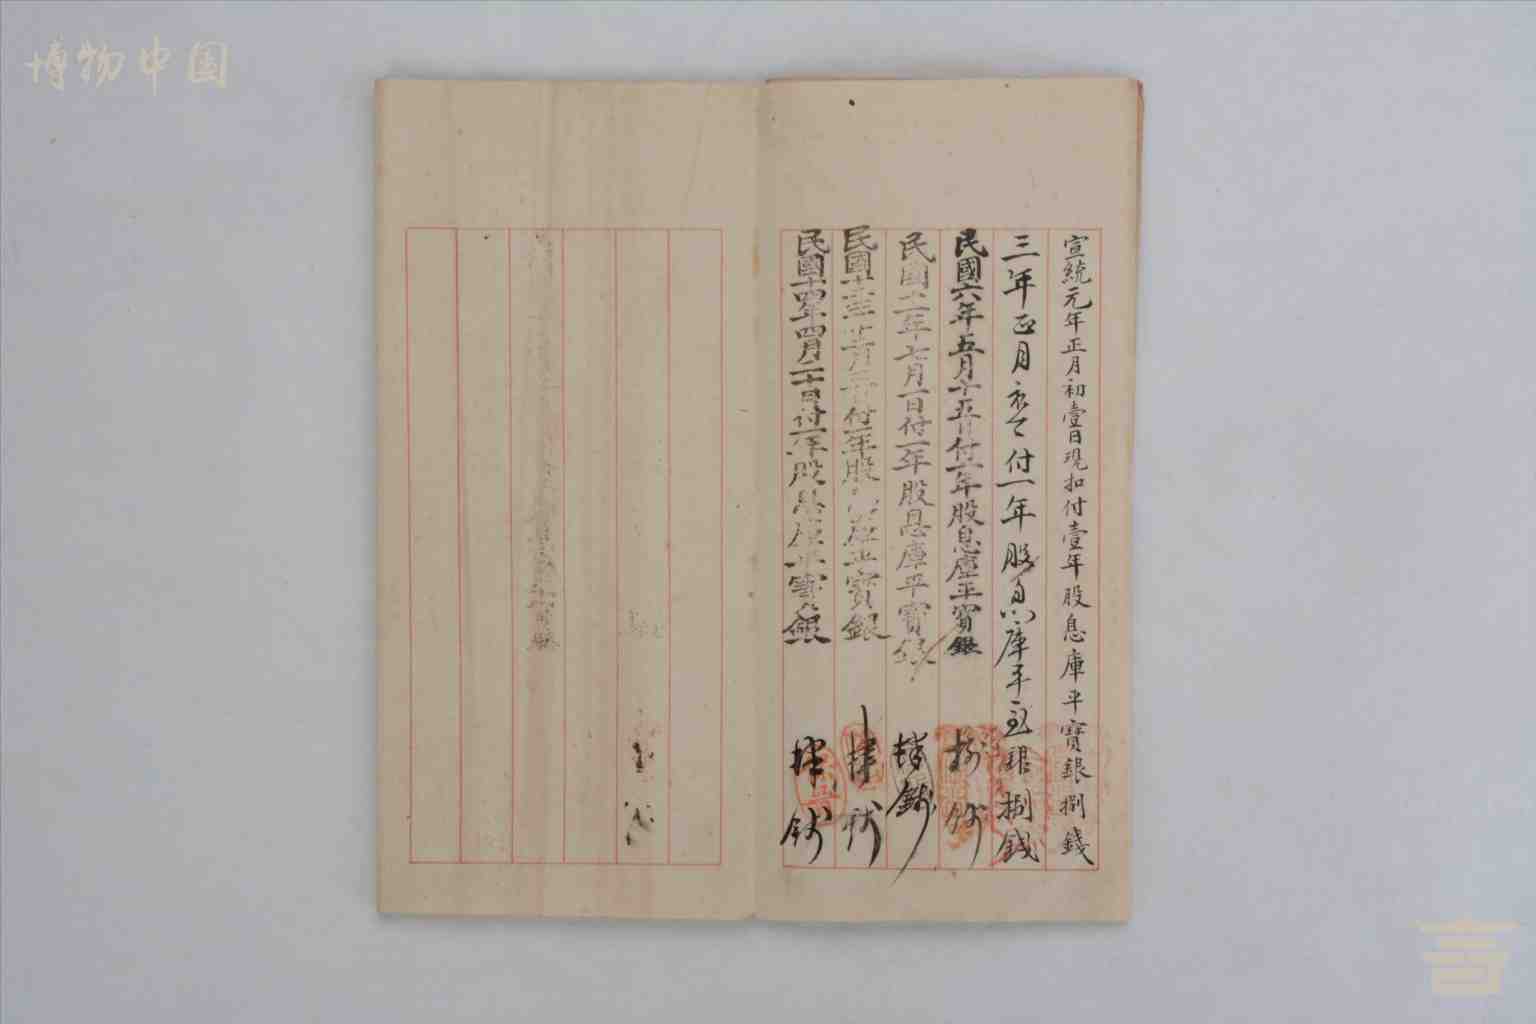 博物中国
宣統元年正月初壹日現扣付壹年股息庫平寶銀捌錢
三年正月初一付一年股息庫平寶銀捌錢
民國六年五月十五日付一年股息庫平寶銀捌錢
民國十一年七月一日付一年股息庫平寶銀捌錢
民國十三年 月 日付一年股息庫平寶銀肆錢
民國十四年四月二十日付一年股息庫平寶銀肆錢